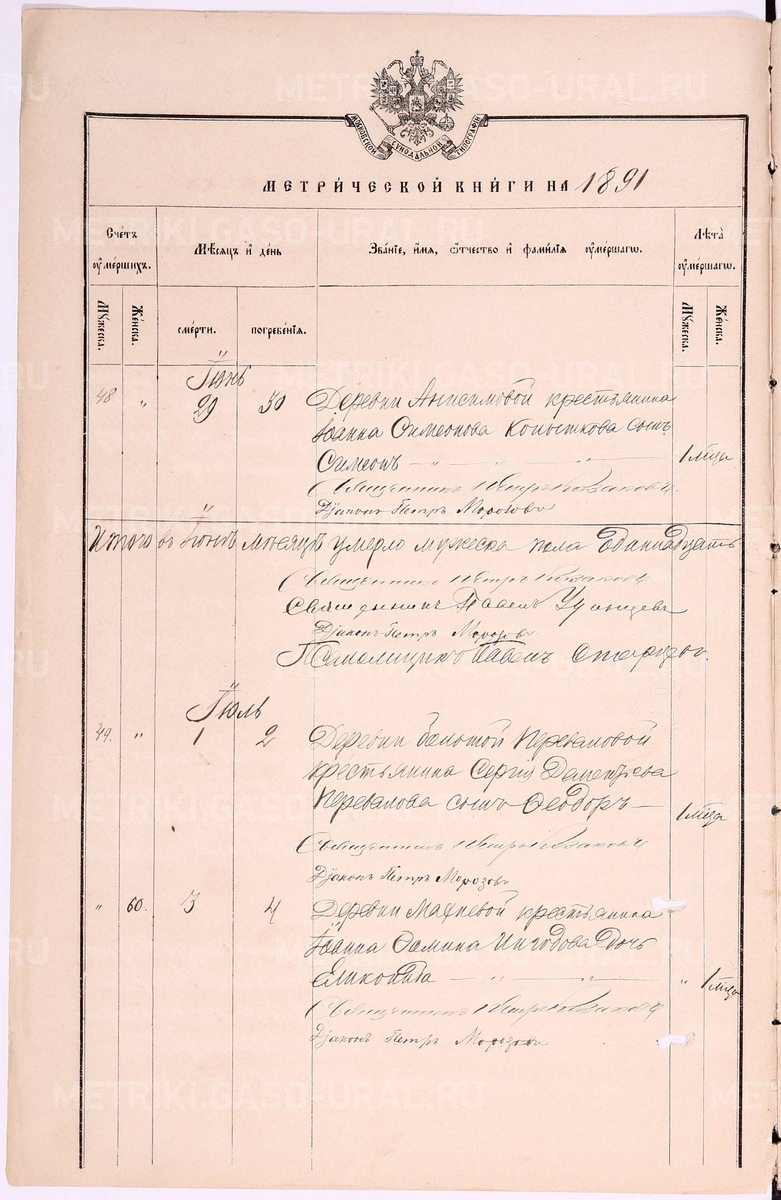 МОСКОВСКОЙ СѴНОДАЛЬНОЙ ТИПОГРАФІИ
МЕТРИ́ЧЕСКОЙ КНИ́ГИ НА 1891
Сче́тъ оуме́ршихъ.
Мѣ́сяцъ и҆ де́нь
Зва́ніе, и҆́мя, ѻ҆́тчество и҆ фами́лія оуме́ршагѡ.
Лѣ́та оуме́ршагѡ.
Мꙋ́жеска.
Же́нска.
сме́рти.
погребе́нія.
Мꙋ́жеска.
Же́нска.
Іюнь
48. " 29 30 Деревни Анисимовой крестьянина
Іоанна Симеонова Копыткова сынъ
Симеонъ — " — " — 1 м̃ца
Священникъ Петръ
Діаконъ Петръ Морозовъ
Итого въ Іюнѣ мѣсяцѣ умерло мужеска пола одиннадцать
Священникъ Петръ
Священникъ Павелъ
Діаконъ Петръ Морозовъ
Псаломщикъ Павелъ
Іюль
49. " 1 2 Деревни Переваловой
крестьянина Сергія Дометіева
Перевалова сынъ Ѳеодоръ — 1 м̃ца
Священникъ Петръ
Діаконъ Петръ Морозовъ
" 60. 3 4 Деревни Махневой крестьянина
Іоанна Ѳомина дочь
" 1 м̃ца
Священникъ Петръ
Діаконъ Петръ Морозовъ
METRIKI.GASO-URAL.RU